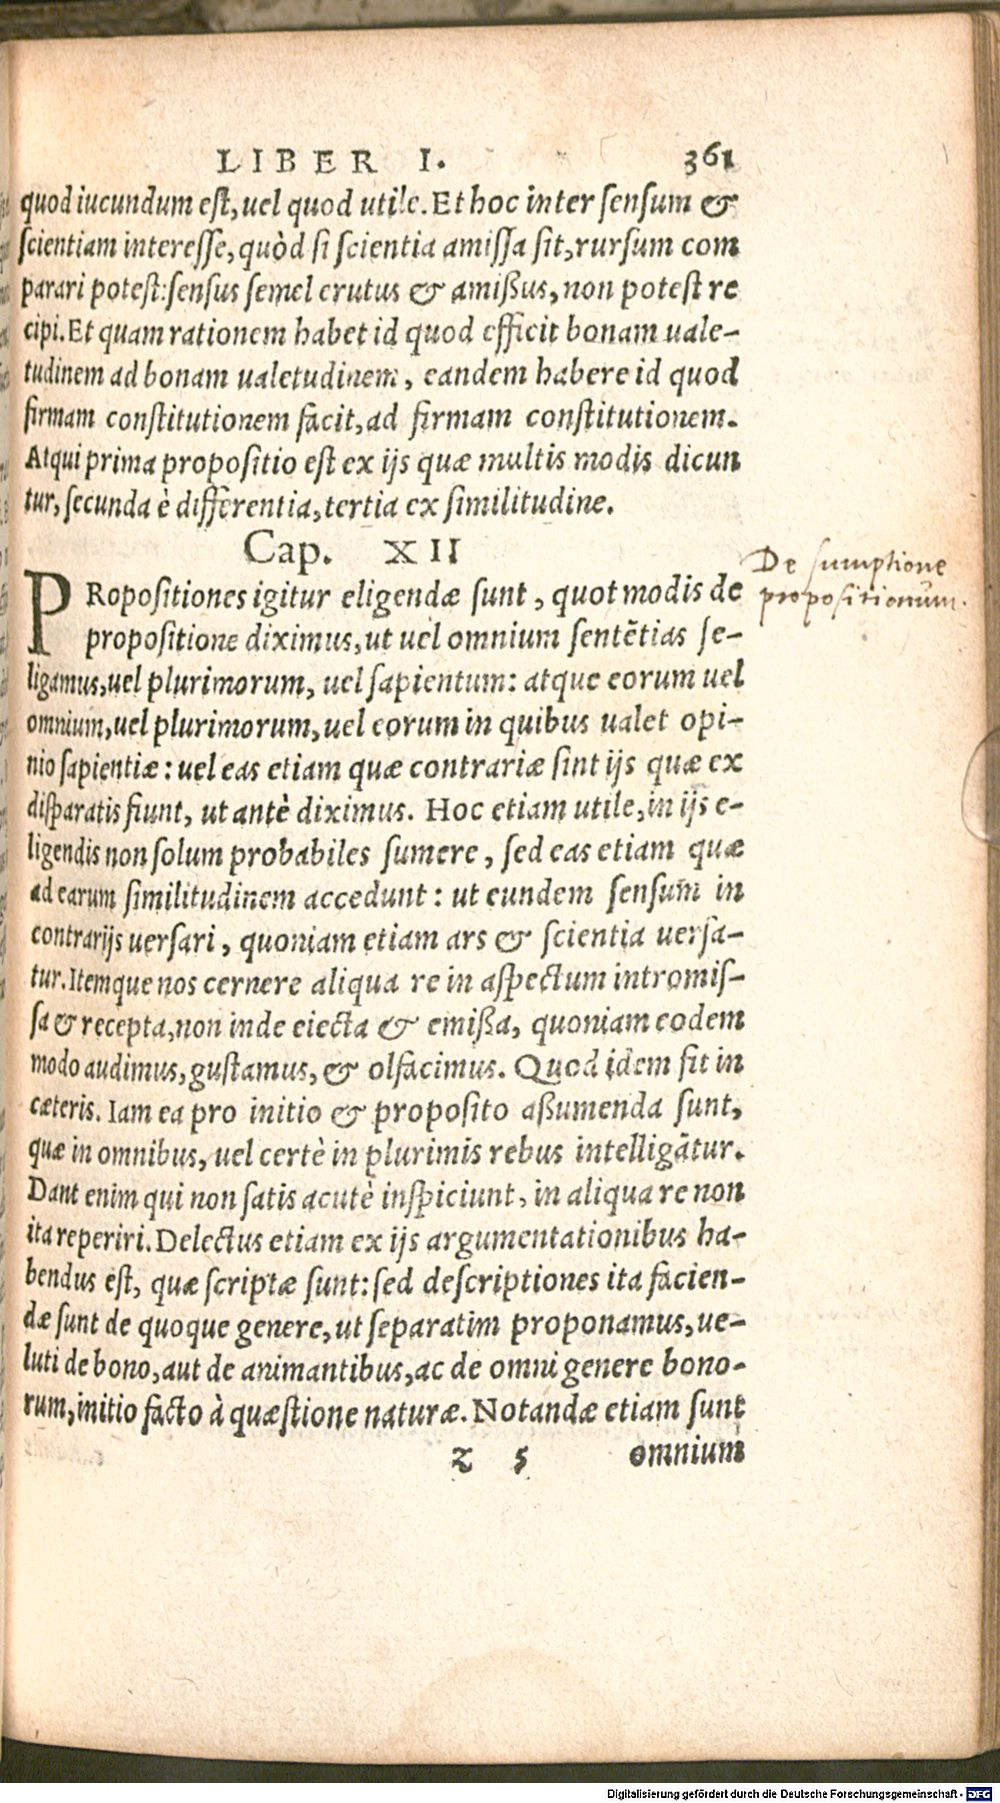 LIBER I. 361
quod iucundum est, uel quod utile. Et hoc inter sensum &
scientiam interesse, quòd si scientia amissa sit, rursum com
parari potest: sensus semel erutus & amißus, non potest re
cipi. Et quam rationem habet id quod efficit bonam uale-
tudinem ad bonam ualetudinem, eandem habere id quod
firmam constitutionem facit, ad firmam constitutionem.
Atqui prima propositio est ex ijs quæ multis modis dicun
tur, secunda è differentia, tertia ex similitudine.
Cap. XII
PRopositiones igitur eligendæ sunt, quot modis de
propositione diximus, ut uel omnium sentētias se-
ligamus, uel plurimorum, uel sapientum: atque eorum uel
omnium, uel plurimorum, uel eorum in quibus ualet opi-
nio sapientiæ: uel eas etiam quæ contrariæ sint ijs quæ ex
disparatis fiunt, ut antè diximus. Hoc etiam utile, in ijs e-
ligendis non solum probabiles sumere, sed eas etiam quæ
ad earum similitudinem accedunt: ut eundem sensum in
contrarijs uersari, quoniam etiam ars & scientia uersa-
tur. Itemque nos cernere aliqua re in aspectum intromis-
sa & recepta, non inde eiecta & emißa, quoniam eodem
modo audimus, gustamus, & olfacimus. Quod idem fit in
cæteris. Iam ea pro initio & proposito aßumenda sunt,
quæ in omnibus, uel certè in plurimis rebus intelligātur.
Dant enim qui non satis acutè inspiciunt, in aliqua re non
ita reperiri. Delectus etiam ex ijs argumentationibus ha-
bendus est, quæ scriptæ sunt: sed descriptiones ita facien-
dæ sunt de quoque genere, ut separatim proponamus, ue-
luti de bono, aut de animantibus, ac de omni genere bono-
rum, initio facto à quæstione naturæ. Notandæ etiam sunt
z 5 omnium
De sumptione
propositionum.
Digitalisierung gefördert durch die Deutsche Forschungsgemeinschaft - DFG